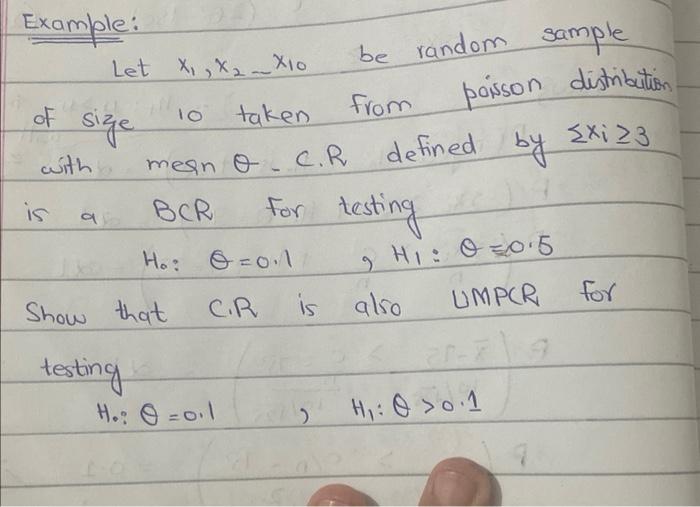 Example:
Let x₁, x₂ _ x₁₀ be random sample
of size 10 taken from poisson distribution
with mean θ - C.R defined by Σxi ≥ 3
is a BCR for testing
H₀: θ = 0.1 , H₁: θ = 0.5
Show that C.R is also UMPCR for
testing
H₀: θ = 0.1 , H₁: θ > 0.1